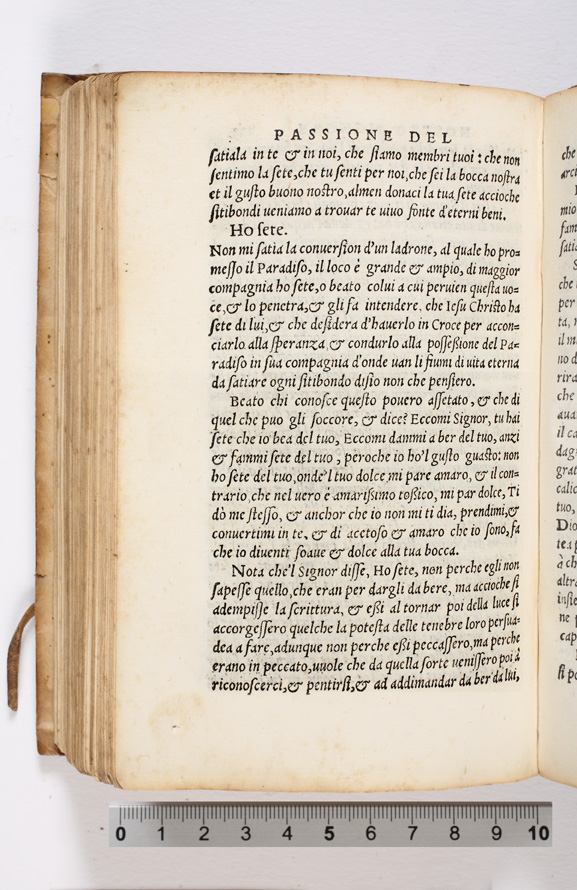 PASSIONE DEL
ſatiala in te & in noi, che ſiamo membri tuoi : che non
ſentimo la ſete, che tu ſenti per noi, che ſei la bocca noſtra
et il guſto buono noſtro, almen donaci la tua ſete accioche
ſitibondi ueniamo a trouar te uiuo fonte d'eterni beni.
Ho ſete.
Non mi ſatia la conuerſion d'un ladrone, al quale ho pro=
meſſo il Paradiſo, il loco è grande & ampio, di maggior
compagnia ho ſete, o beato colui a cui peruien queſta uo=
ce, & lo penetra, & gli fa intendere, che Ieſu Chriſto ha
ſete di lui, & che deſidera d'hauerlo in Croce per accon=
ciarlo alla ſperanza & condurlo alla poſſeßione del Pa=
radiſo in ſua compagnia d'onde uan li fiumi di uita eterna
da ſatiare ogni ſitibondo diſio non che penſiero.
Beato chi conoſce queſto pouero aſſetato, & che di
quel che puo gli ſoccore, & dice? Eccomi Signor, tu hai
ſete che io bea del tuo, Eccomi dammi a ber del tuo, anzi
& fammi ſete del tuo, peroche io ho'l guſto guaſto: non
ho ſete del tuo, onde'l tuo dolce mi pare amaro, & il con=
trario, che nel uero è amarißimo toßico, mi par dolce, Ti
dò me ſteſſo, & anchor che io non mi ti dia, prendimi, &
conuertimi in te, & di acetoſo & amaro che io ſono, fa
che io diuenti ſoaue & dolce alla tua bocca.
Nota che'l Signor diſſe, Ho ſete, non perche egli non
ſapeſſe quello, che eran per dargli da bere, ma accioche ſi
adempiſſe la ſcrittura, & eßi al tornar poi della luce ſi
accorgeſſero quelche la poteſta delle tenebre loro perſua=
dea a fare, adunque non perche eßi peccaſſero, ma perche
erano in peccato, uuole che da quella ſorte ueniſſero poi à
riconoſcerci, & pentirſi, & ad addimandar da ber da lui,
0 1 2 3 4 5 6 7 8 9 10